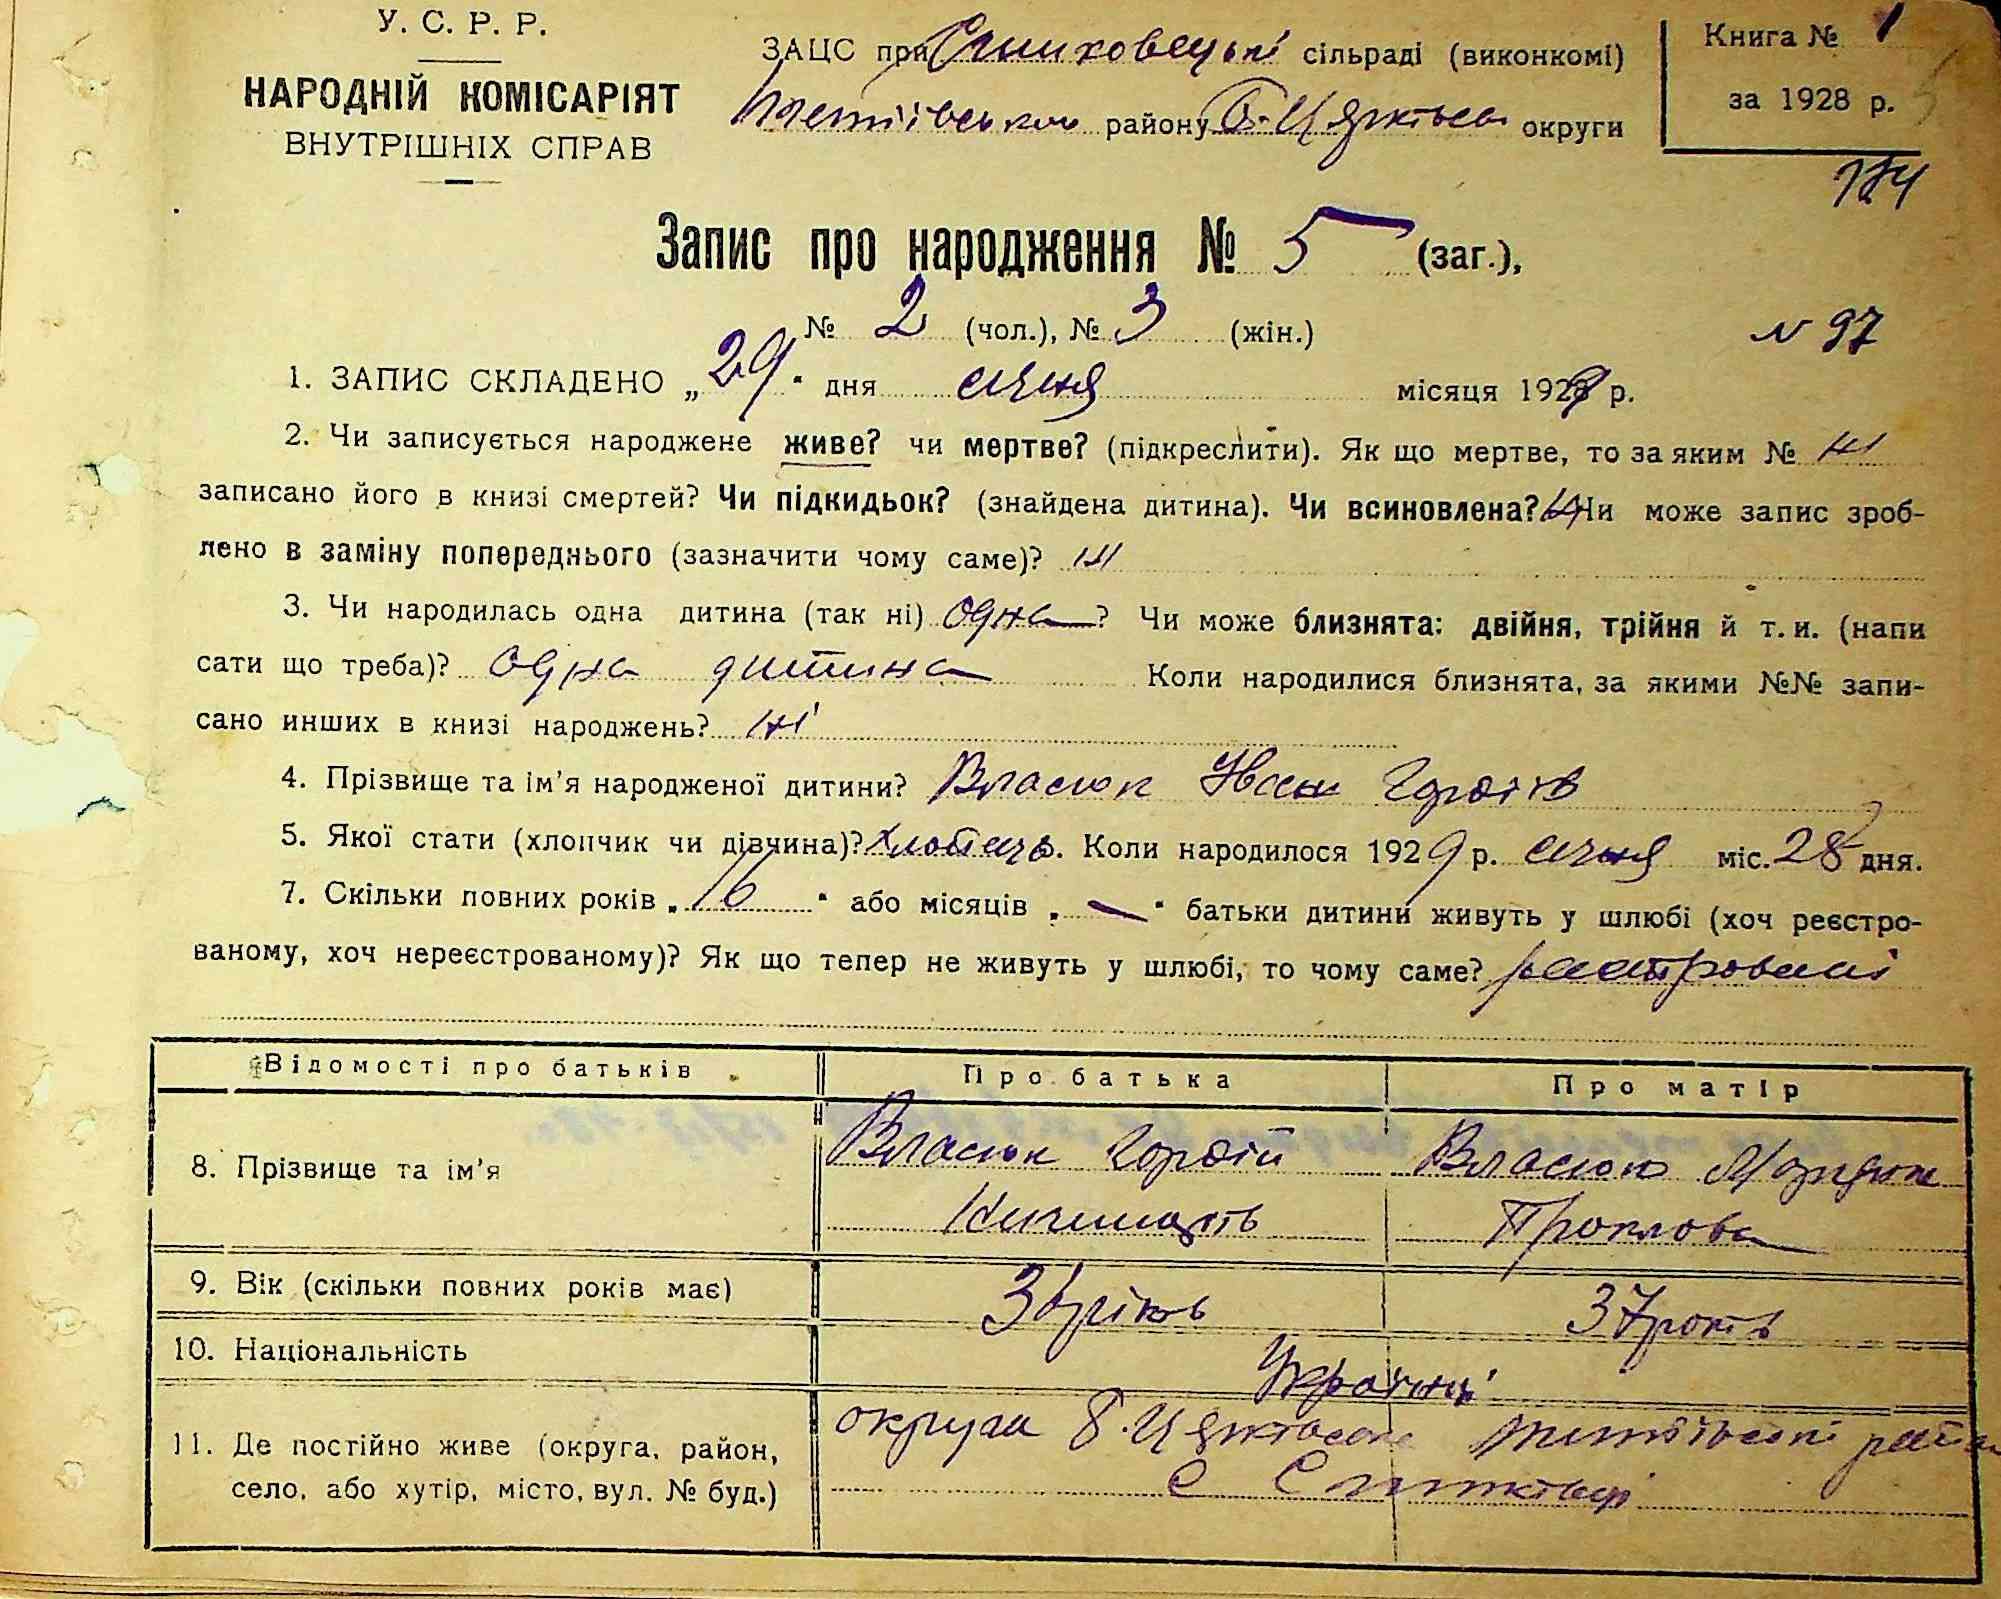 У. С. Р. Р.
НАРОДНІЙ КОМІСАРІЯТ
ВНУТРІШНІХ СПРАВ
ЗАЦС при сільраді (виконкомі)
району Б. Ц округи
Книга № 1
за 1928 р.
174
Запис про народження № 5 (заг.),
№ 2 (чол.), № 3 (жін.)
N 97
1. ЗАПИС СКЛАДЕНО „29" дня січня місяця 1929 р.
2. Чи записується народжене живе? чи мертве? (підкреслити). Як що мертве, то за яким № ні
записано його в книзі смертей? Чи підкидьок? (знайдена дитина). Чи всиновлена? Чи може запис зроб-
лено в заміну попереднього (зазначити чому саме)? ні
3. Чи народилась одна дитина (так ні) одна? Чи може близнята: двійня, трійня й т. и. (напи
сати що треба)? одна дитина Коли народилися близнята, за якими №№ запи-
сано инших в книзі народжень? ні
4. Прізвище та ім'я народженої дитини? Власюк Іван Гордіїв
5. Якої стати (хлопчик чи дівчина)? хлопець. Коли народилося 1929 р. січня міс. 28 дня.
7. Скільки повних років „16" або місяців „—" батьки дитини живуть у шлюбі (хоч реєстро-
ваному, хоч нереєстрованому)? Як що тепер не живуть у шлюбі, то чому саме?
Відомості про батьків Про батька Про матір
8. Прізвище та ім'я Власюк Гордій Власюк
Проклова
9. Вік (скільки повних років має) 36 років 37 років
10. Національність Українці
11. Де постійно живе (округа, район, округа Б. Ц
село, або хутір, місто, вул. № буд.) с